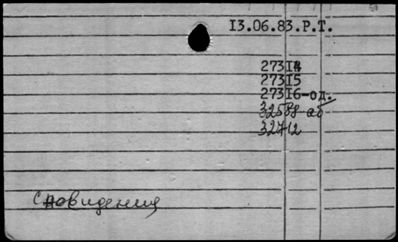 13.06.83.Р.Т.
27314
27315
27316-од.
32588 аб
32712
сновидения